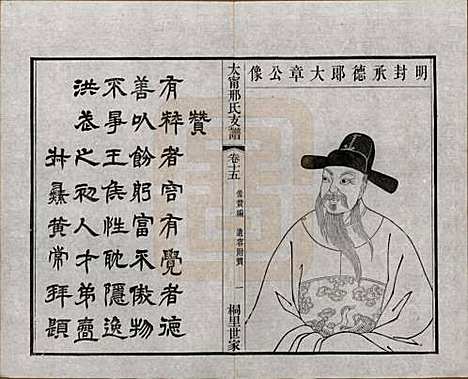 明封承德郎大章公像
太甯邢氏支譜
卷十五
像贊編
遺容附贊
一
桐里世家
贊
有粹者容有覺者德
善以飭躬富不傲物
不事王侯性耽隱逸
洪荒之初人才弟
彝黃常拜題